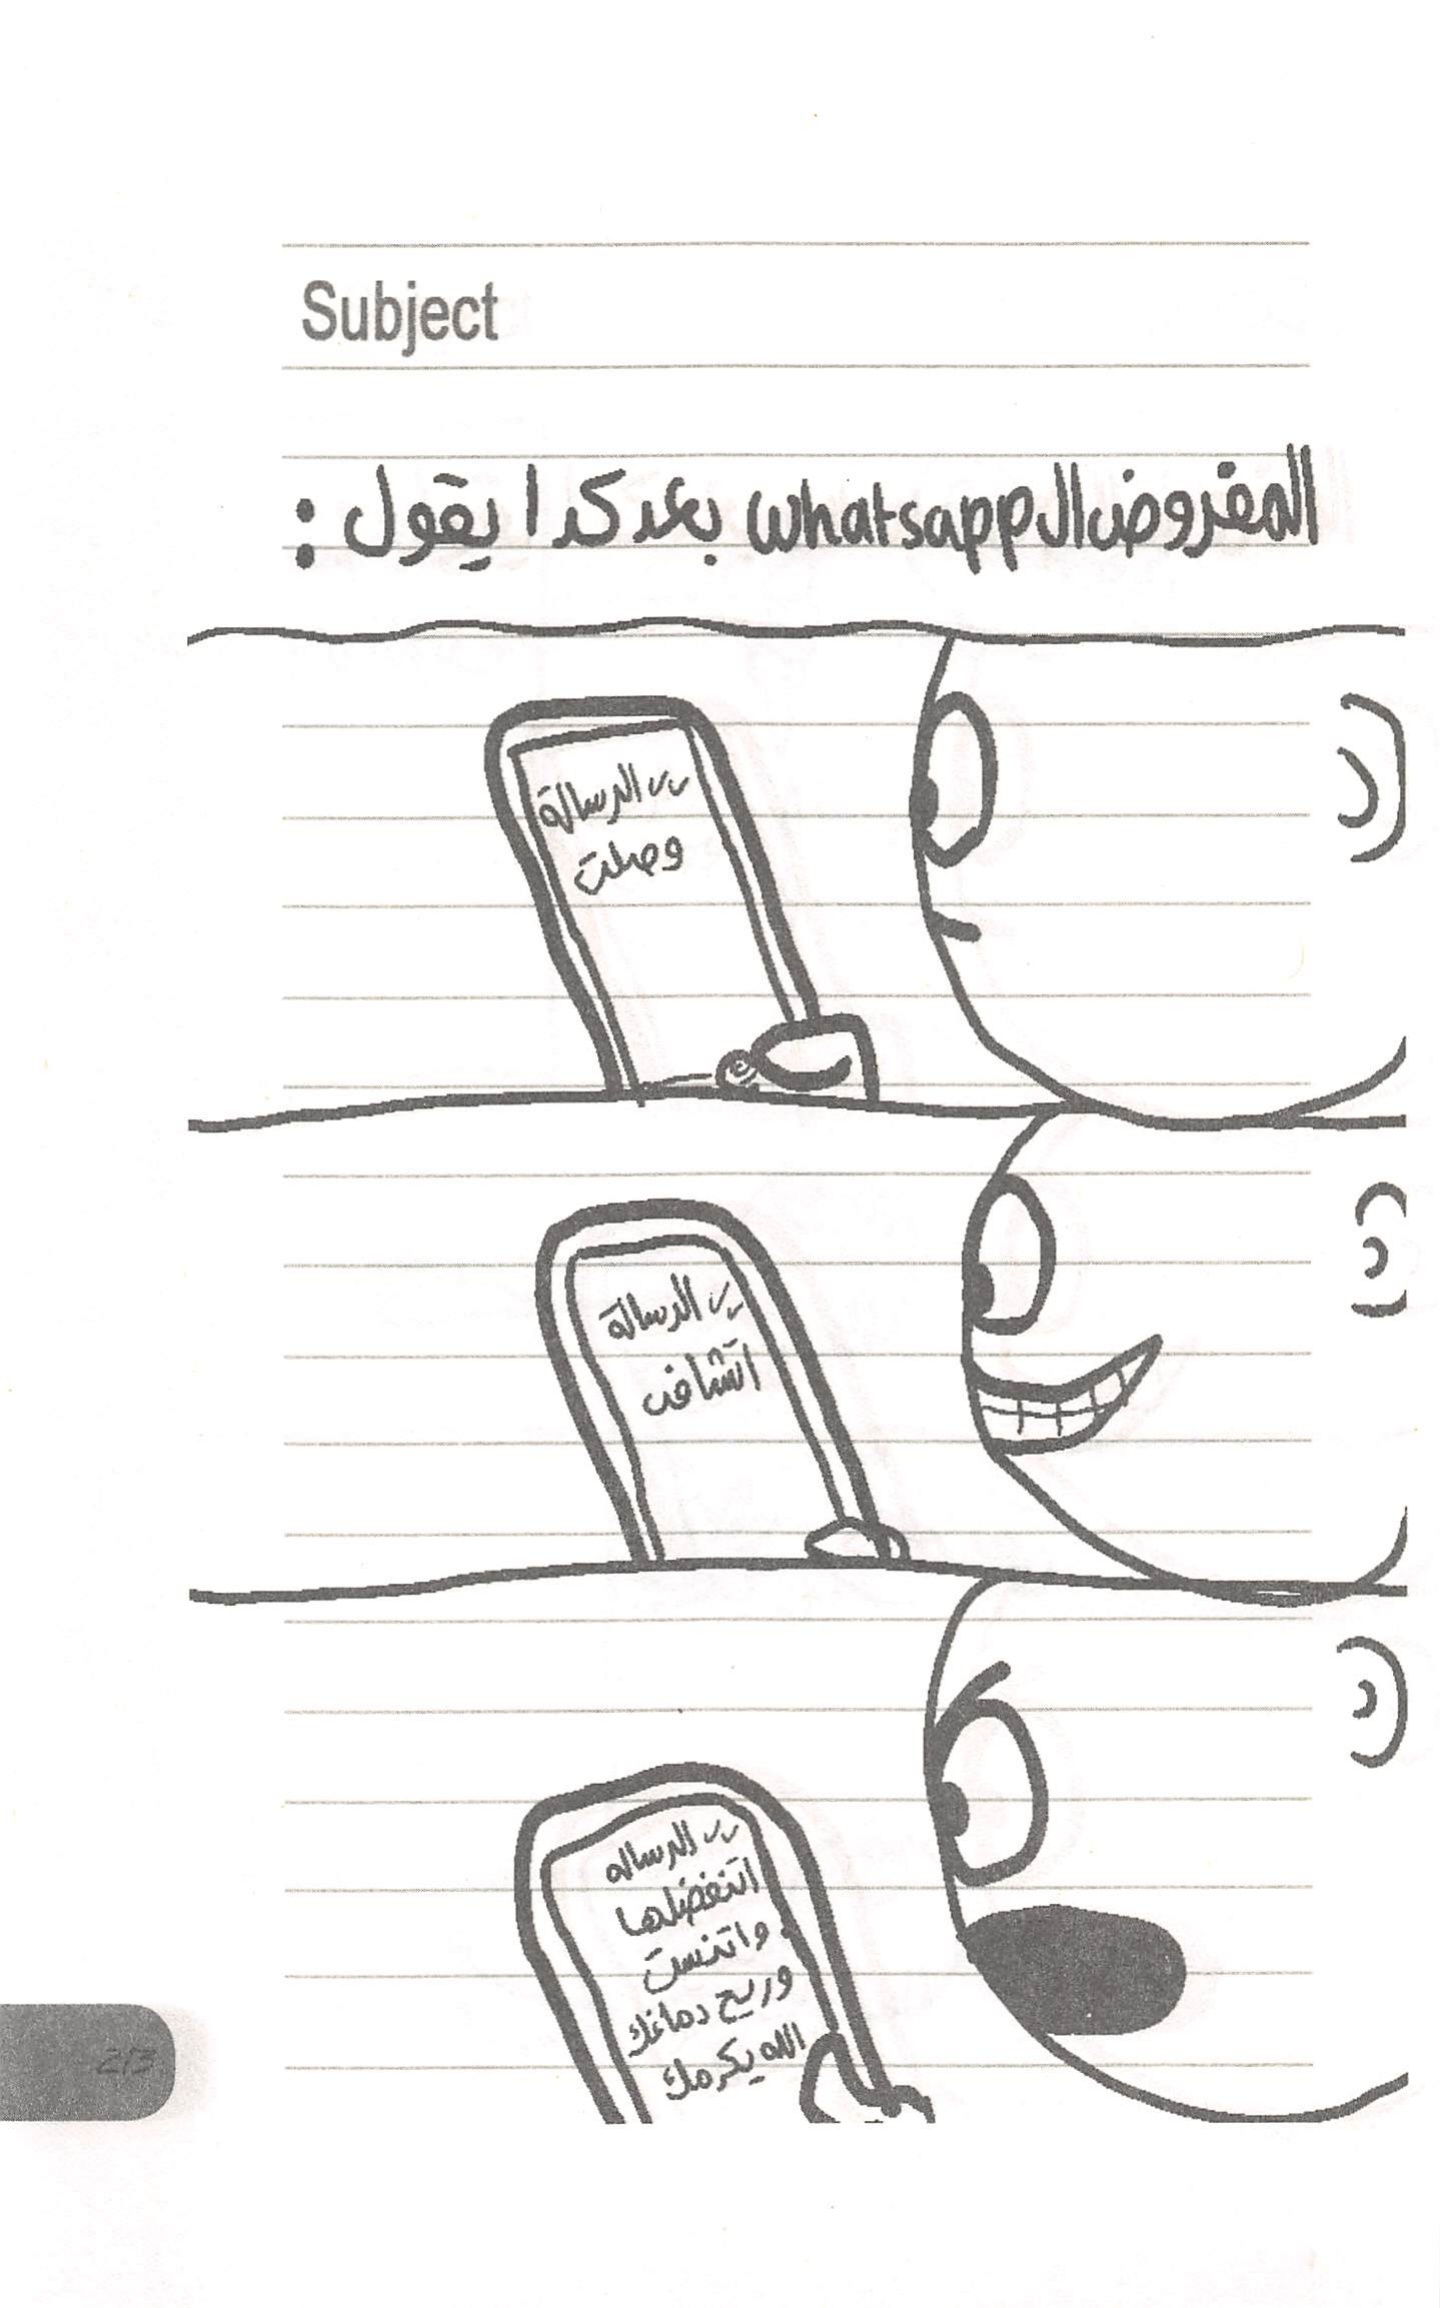 Subject
المفروض ال whatsapp بعد كدا يقول :
✓✓ الرسالة
وصلت
✓✓ الرسالة
اتشافت
✓✓ الرساله
اتنفضلها
واتنست
وريح دماغك
الله يكرمك
213